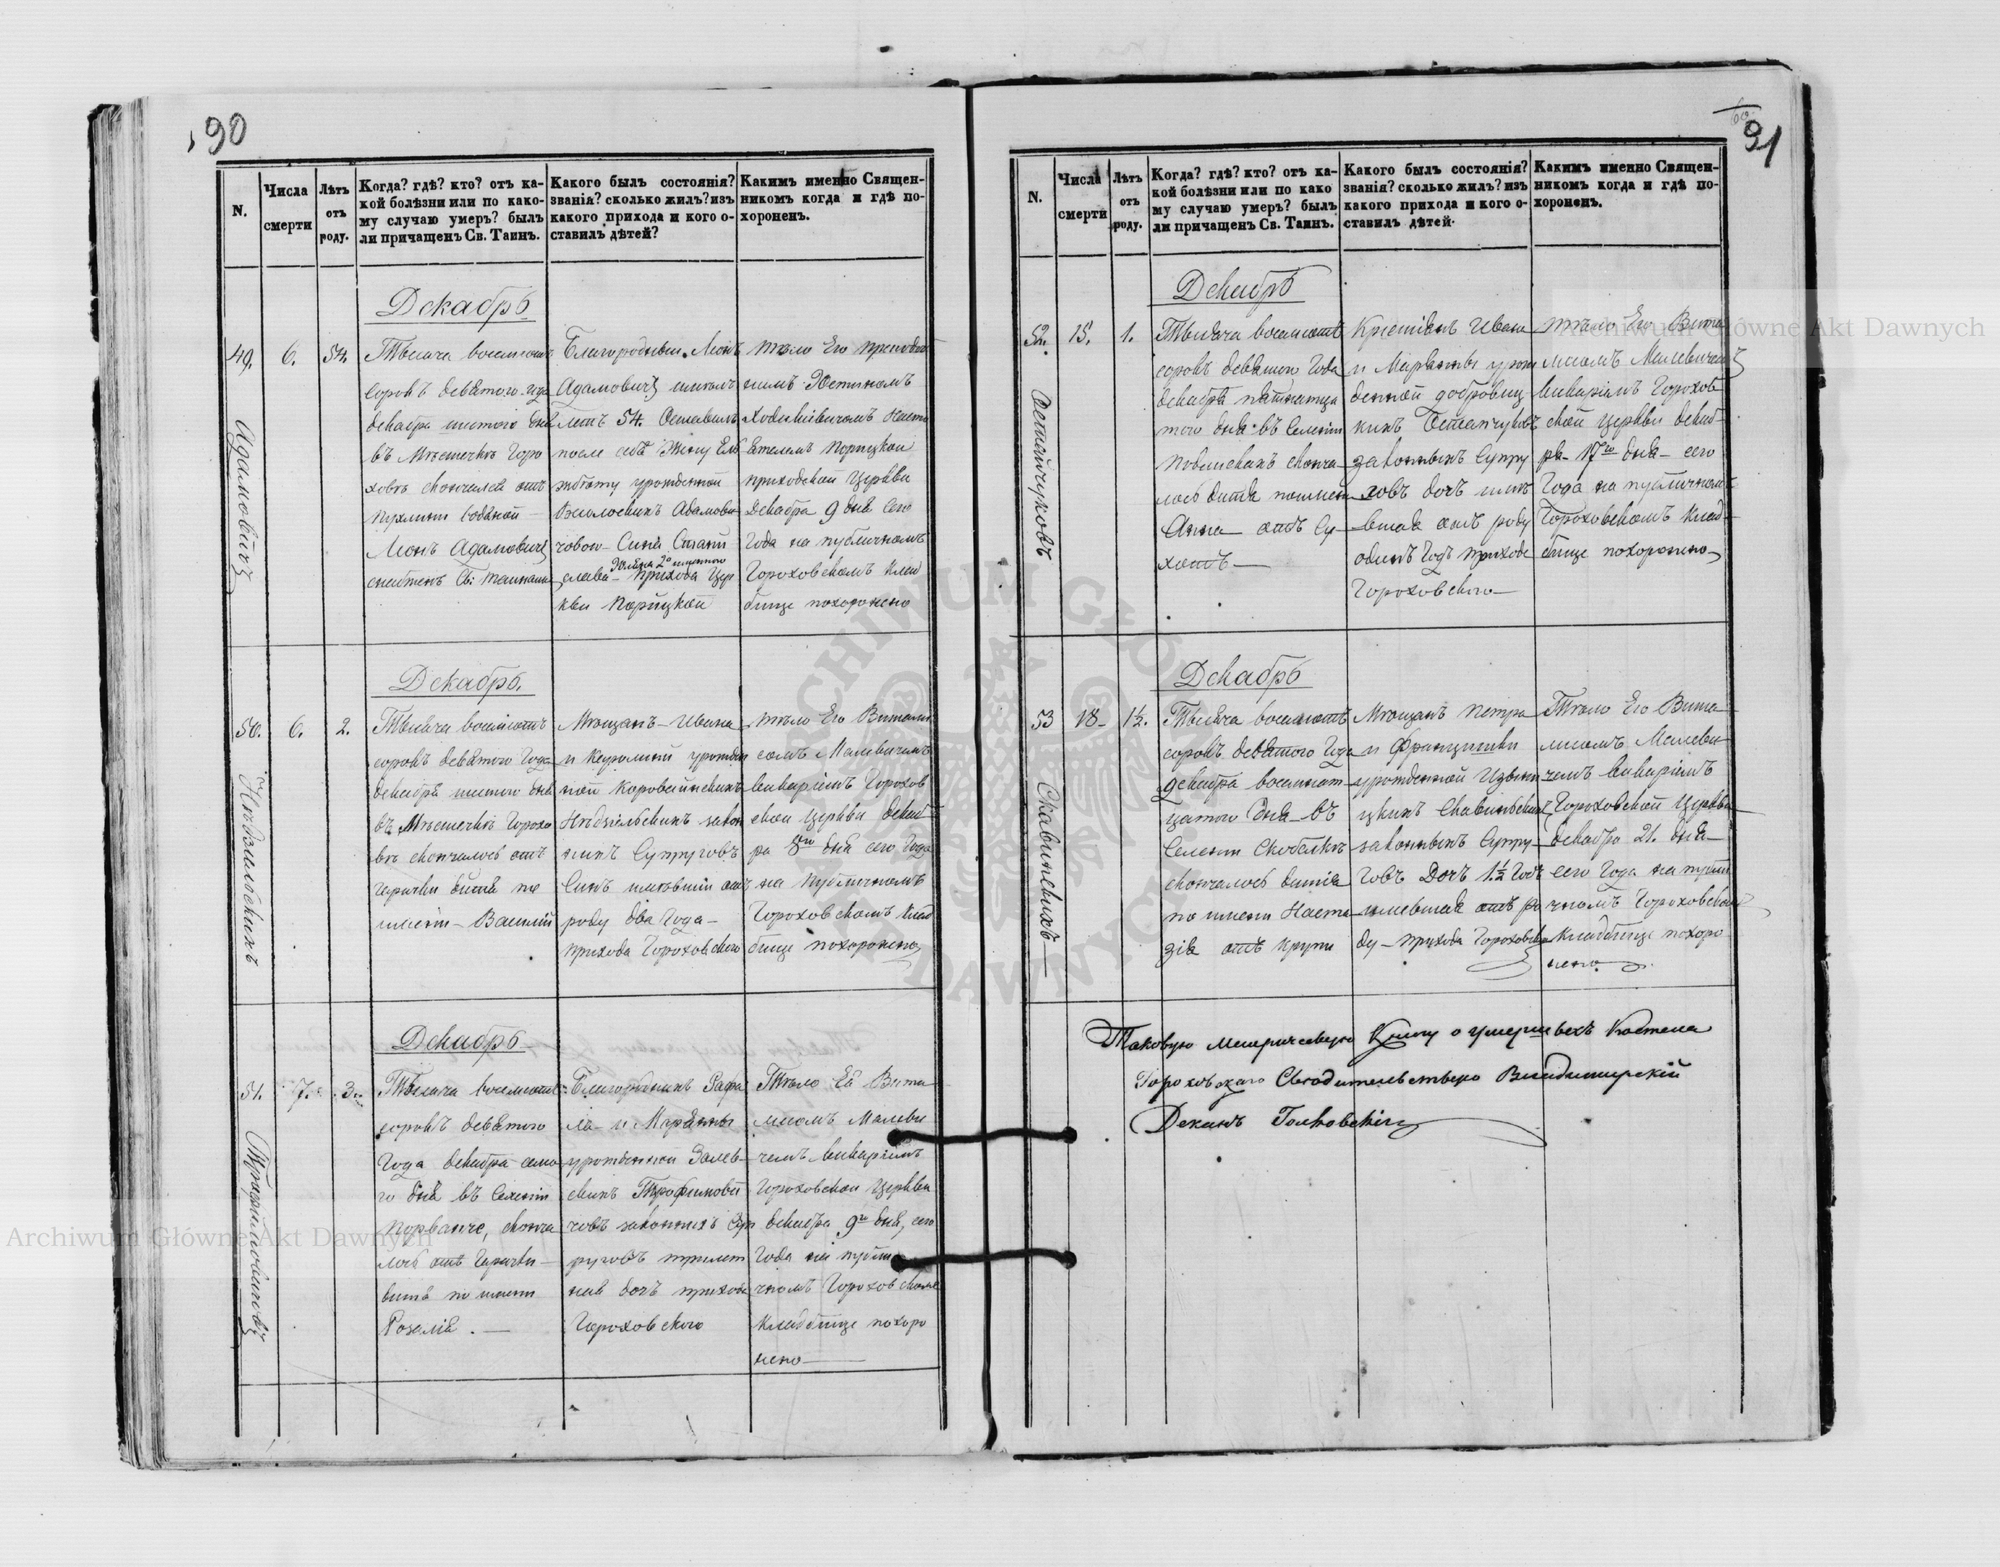 90
N.
Числа смерти
Лѣтъ отъ роду.
Когда? гдѣ? кто? отъ ка-
кой болѣзни или по како-
му случаю умеръ? былъ
ли причащенъ Св. Таинъ.
Какого былъ состоянія?
званія? сколько жилъ? изъ
какого прихода и кого о-
ставилъ дѣтей?
Какимъ именно Священ-
никомъ когда и гдѣ по-
хороненъ.
49.
6.
54.
Адамовичъ
Декабрь
Тысяча восемсотъ
сорокъ девятого года
декабря шестого дня
въ Мѣстечкѣ Горо
ховѣ скончался отъ
пухлини водяной
Леонъ Адамовичъ
Св: Тайнами
Благородный Леонъ
Адамовичъ
Летъ 54. Оставилъ
после себя Жену Ели
жбѣту урожденной
Адамови
човою Сина Стани
слава Прихода Цер
кви Порицкой
тѣло Его преподоб
нимъ Юстиномъ
Ходыкевичомъ Насто
ятелемъ Порицкой
приходской Церкви
Декабря 9 дня сего
Года на публичномъ
Гороховскомъ клад
бище похоронено
50.
6.
2.
Недзѣльскихъ
Декабрь.
Тысяча восемсотъ
сорокъ девятого Года
декабря шестого дня
въ Мѣстечкѣ Горохо
вѣ скончалось отъ
горячки дитя по
имени Василий
Мѣщанъ Ивана
и Каролины урожден
ной Каровайскихъ
Недзѣльскихъ закон
нихъ Супруговъ
Синъ имѣвший отъ
роду два Года
прихода Гороховского
тѣло Его Витали
сомъ Малевичемъ
викаріемъ Горохов
ской Церкви декаб
ря 8го дня сего Года
на Публичномъ
Гороховскомъ клад
бище похоронено
51.
7.
3.
Трофимовичовъ
Декабрь
Тысяча восемсотъ
сорокъ девятого
Года декабря семо
го дня въ Селеніи
Порванче, сконча
лось отъ Горячки
дитя по имени
Розалія.
Благородныхъ Рафа
ла и Маріянны
урожденной Залев
скихъ Трофимови
човъ законныхъ Суп
руговъ трилет
ная дочь прихода
Гороховского
Тѣло Ея Вита
лисомъ Малеви
чемъ викаріемъ
Гороховской Церкви
декабря 9го дня, сего
Года на публи
чномъ Гороховскомъ
Кладбище похоро
нено
91
N.
Числа смерти
Лѣтъ отъ роду.
Когда? гдѣ? кто? отъ ка-
кой болѣзни или по како
му случаю умеръ? былъ
ли причащенъ Св. Таинъ.
Какого былъ состоянія?
званія? сколько жилъ? изъ
какого прихода и кого о-
ставилъ дѣтей.
Какимъ именно Священ-
никомъ когда и гдѣ по-
хороненъ.
52.
15.
1.
Остапчуковъ
Декабрь
Тысяча восемсотъ
сорокъ девятого Года
декабря пятнатца
того дня въ Селеніи
сконча
лось дитя поимени
Анна отъ Су
хотъ
Крестянъ Ивана
и Маріянны урож
денной
кихъ Остапчуковъ
законныхъ Супру
говъ дочь имѣ
вшая отъ роду
одинъ Годъ прихода
Гороховского
тѣло Его Вита
лисомъ Малевичемъ
викаріемъ Горохов
ской Церкви декаб
ря 17го дня сего
Года на публичномъ
Гороховскомъ клад
бище похоронено
53
18
1½.
Скавинскихъ
Декабрь
Тысяча восемсотъ
сорокъ девятого Года
декабря восемнат
цатого дня въ
Селеніи
скончалось дитя
по имени Наста
зія отъ крупи
Мѣщанъ Петра
и Францишки
урожденной
цкихъ Скавинскихъ
законныхъ Супру
говъ Дочь 1½ Годъ
имевшая отъ ро
ду прихода Гороховско
Тѣло Его Вита
лисомъ Малеви
чемъ викаріемъ
Гороховской Церкви
декабря 21. дня
сего Года на публи
чномъ Гороховском
Кладбище похоро
нено.
Таковую Метрическую Книгу о умершихъ Костела
Гороховскаго Свѣдительствую Владимирскій
Деканъ
Archiwum Główne Akt Dawnych
Archiwum Główne Akt Dawnych
ARCHIWUM GŁÓWNE AKT DAWNYCH